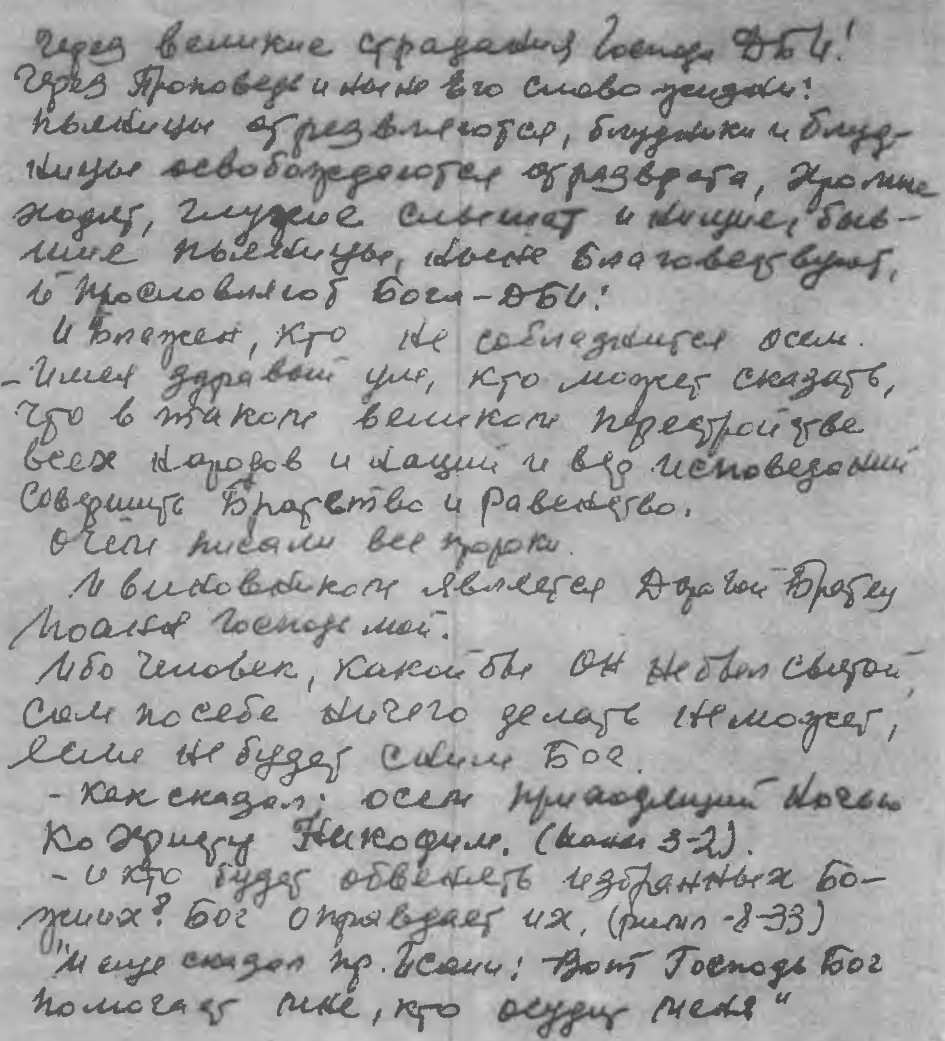 Через великие страдания Господа ДБИ!
Через Проповедь и ныне Его слово жизни!
пьяницы отрезвляются, блудники и блуд-
ницы освобождаются от разврата, хромые
ходят, глухие слышат и нищие, быв-
шие пьяницы, ныне благовествуют,
и прославляют Бога-ДБИ!
И Блажен, кто не соблазнится осем.
- Имея здравый ум, кто может сказать,
что в таком великом перестройстве
всех народов и наций и вер исповеданий
Совершить Братство и равенство.
О чем писали все пророки.
И виновником является Дорогой Братец
Иоанн Господь мой.
Ибо человек, какой бы он не был святой,
Сам по себе ничего делать не может,
если не будет с ним Бог.
- Как сказал; осем приходящий ночью
Ко Христу Никодим. (Иоан 3-2).
- и кто будет обвенять избранных Бо-
жиих? Бог оправдает их, (римл -8-33)
"И еще сказал пр. Исаии: Вот Господь Бог
помогает мне, кто осудит меня"